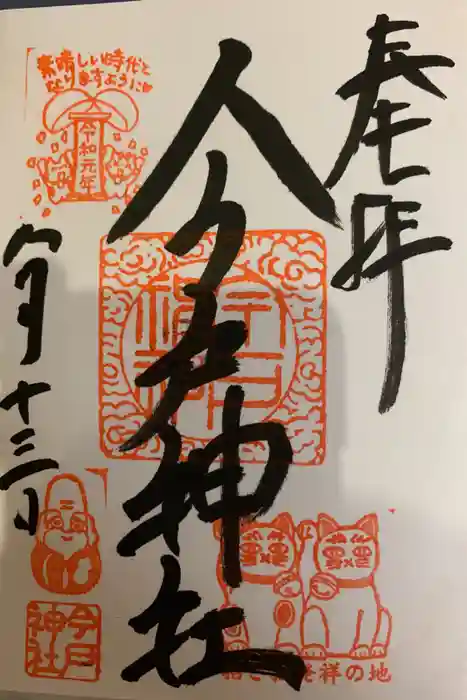 奉拝
今戸神社
素晴しい時代と
なりますように
令和元年
八月十三日
今戸
神社
発祥の地